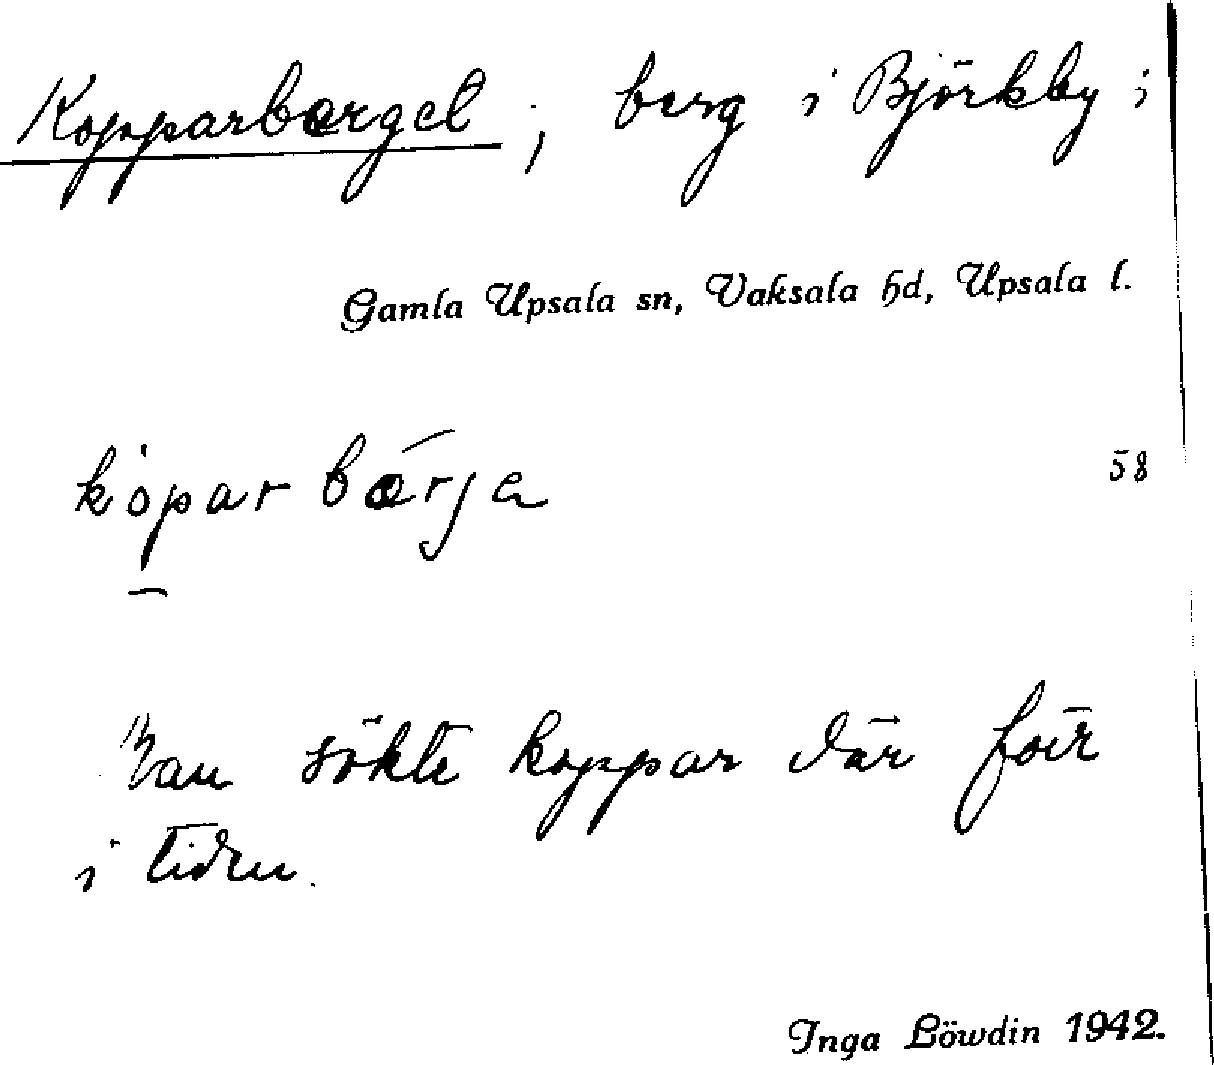 Kopparberget, berg i Björkby i
Gamla Upsala sn, Vaksala hd, Upsala l.
kòpar bærja 58
Man sökte koppar där förr
i tiden.
Inga Löwdin 1942.